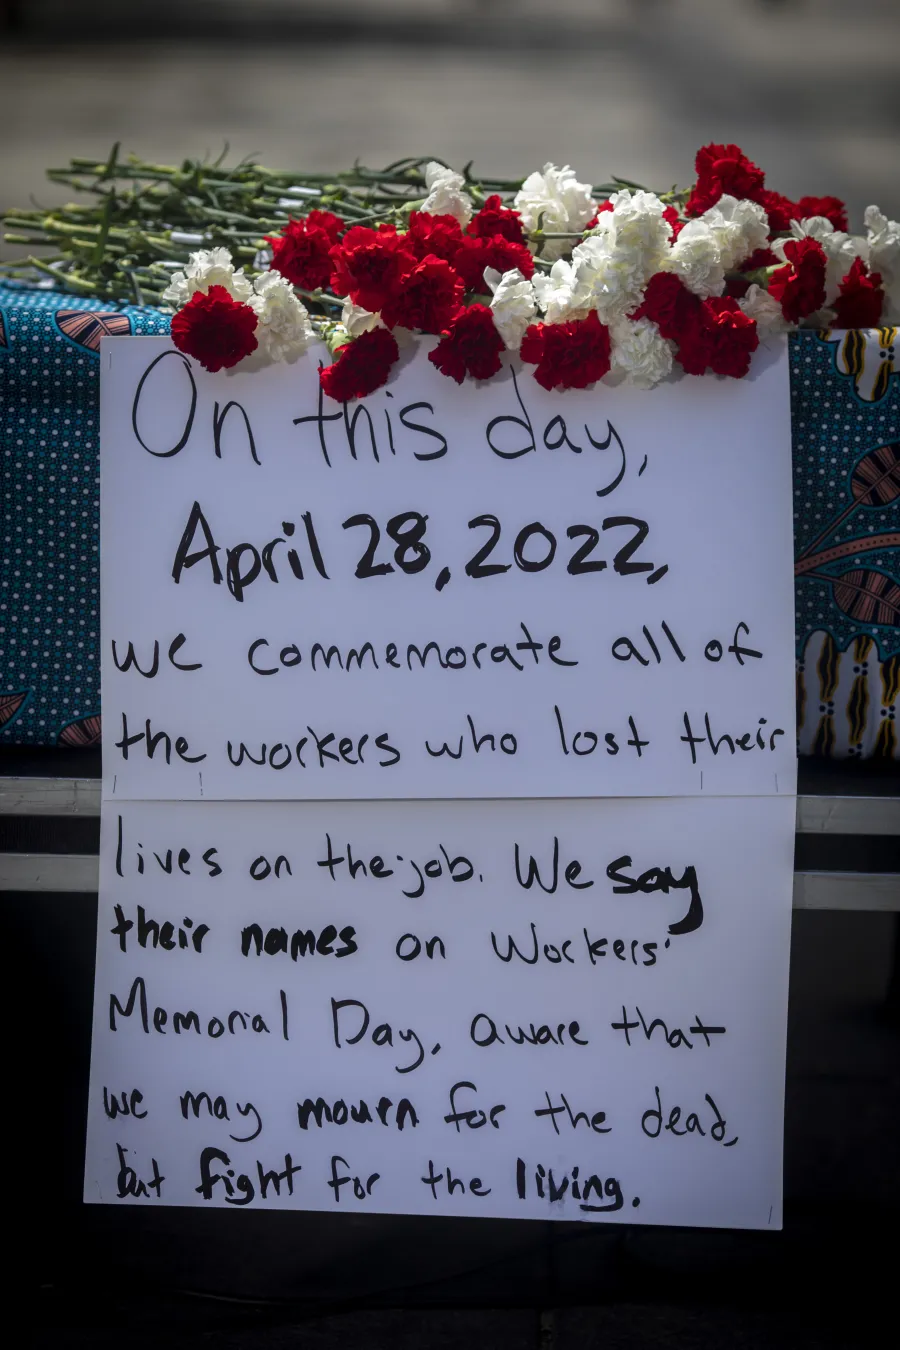 On this day,
April 28, 2022,
we commemorate all of
the workers who lost their
lives on the job. We say
their names on Workers'
Memorial Day, aware that
we may mourn for the dead,
but fight for the living.